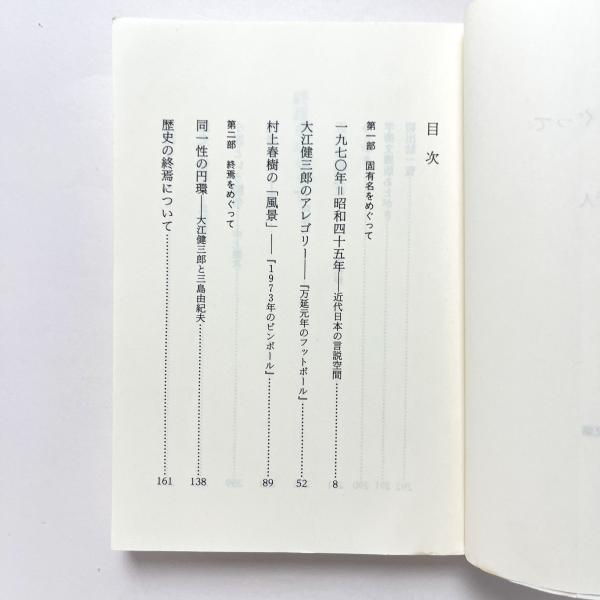 目次
第一部 固有名をめぐって
一九七〇年＝昭和四十五年――近代日本の言説空間……8
大江健三郎のアレゴリー――『万延元年のフットボール』……52
村上春樹の「風景」――『1973年のピンボール』……89
第二部 終焉をめぐって
同一性の円環――大江健三郎と三島由紀夫……138
歴史の終焉について……161